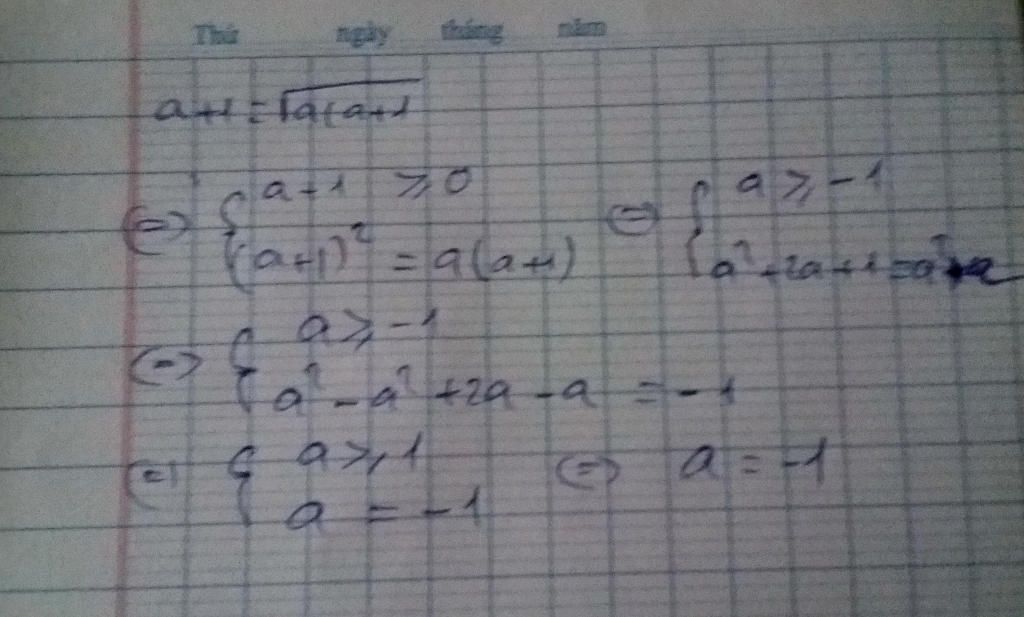 Thứ ngày tháng năm
a+1 = √a(a+1
⇔ { a+1 ≥ 0 ⇔ { a ≥ -1
(a+1)² = a(a+1) a² + 2a + 1 = a² + a
⇔ { a ≥ -1
a² - a² + 2a - a = -1
⇔ { a ≥ 1 ⇔ a = -1
a = -1